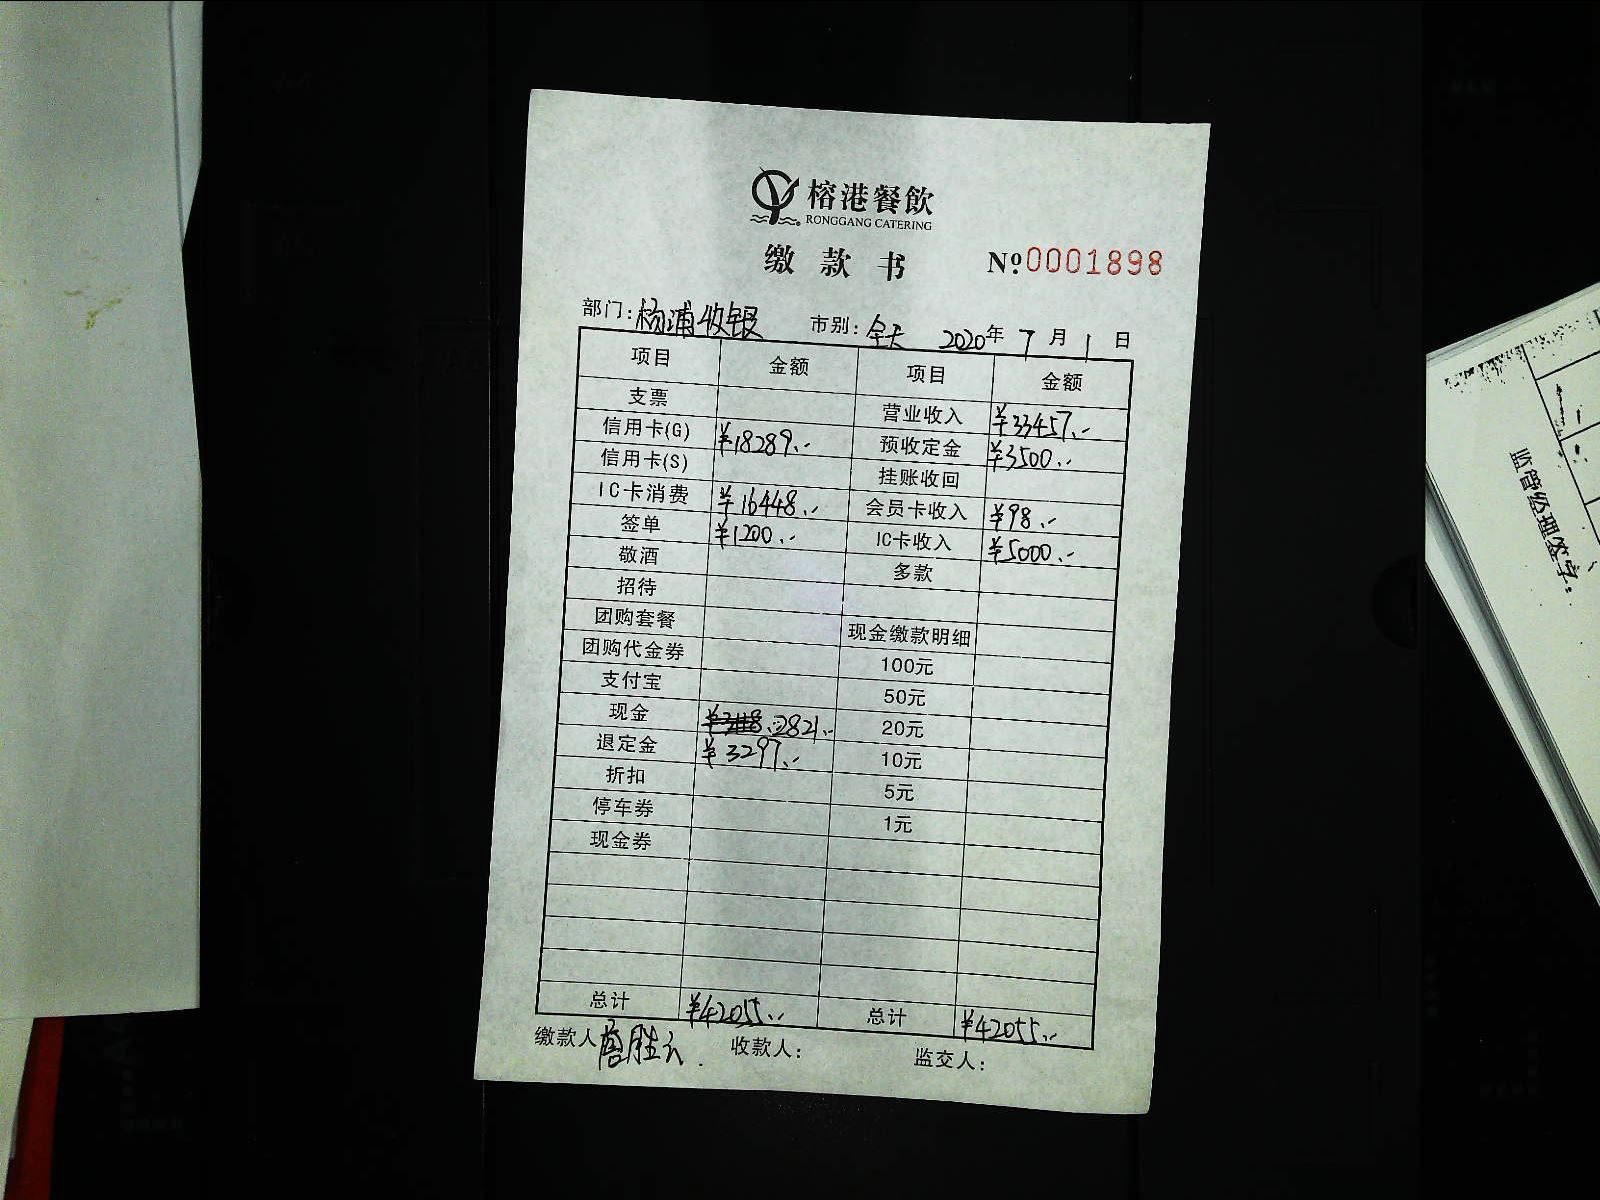 榕港餐飲
RONGGANG CATERING
缴款书 № 0001898
部门: 杨浦收银 市别: 全天 2020年 7月 1日
项目 金额 项目 金额
支票 营业收入 ¥33457.-
信用卡(G) ¥18289.- 预收定金 ¥3500.-
信用卡(S) 挂账收回
IC卡消费 ¥16448.- 会员卡收入 ¥98.-
签单 ¥1200.- IC卡收入 ¥5000.-
敬酒 多款
招待
团购套餐 现金缴款明细
团购代金券 100元
支付宝 50元
现金 2821.- 20元
退定金 ¥3297.- 10元
折扣 5元
停车券 1元
现金券
总计 ¥42055.- 总计 ¥42055.-
缴款人 胜云 收款人: 监交人:
监督经理签字: